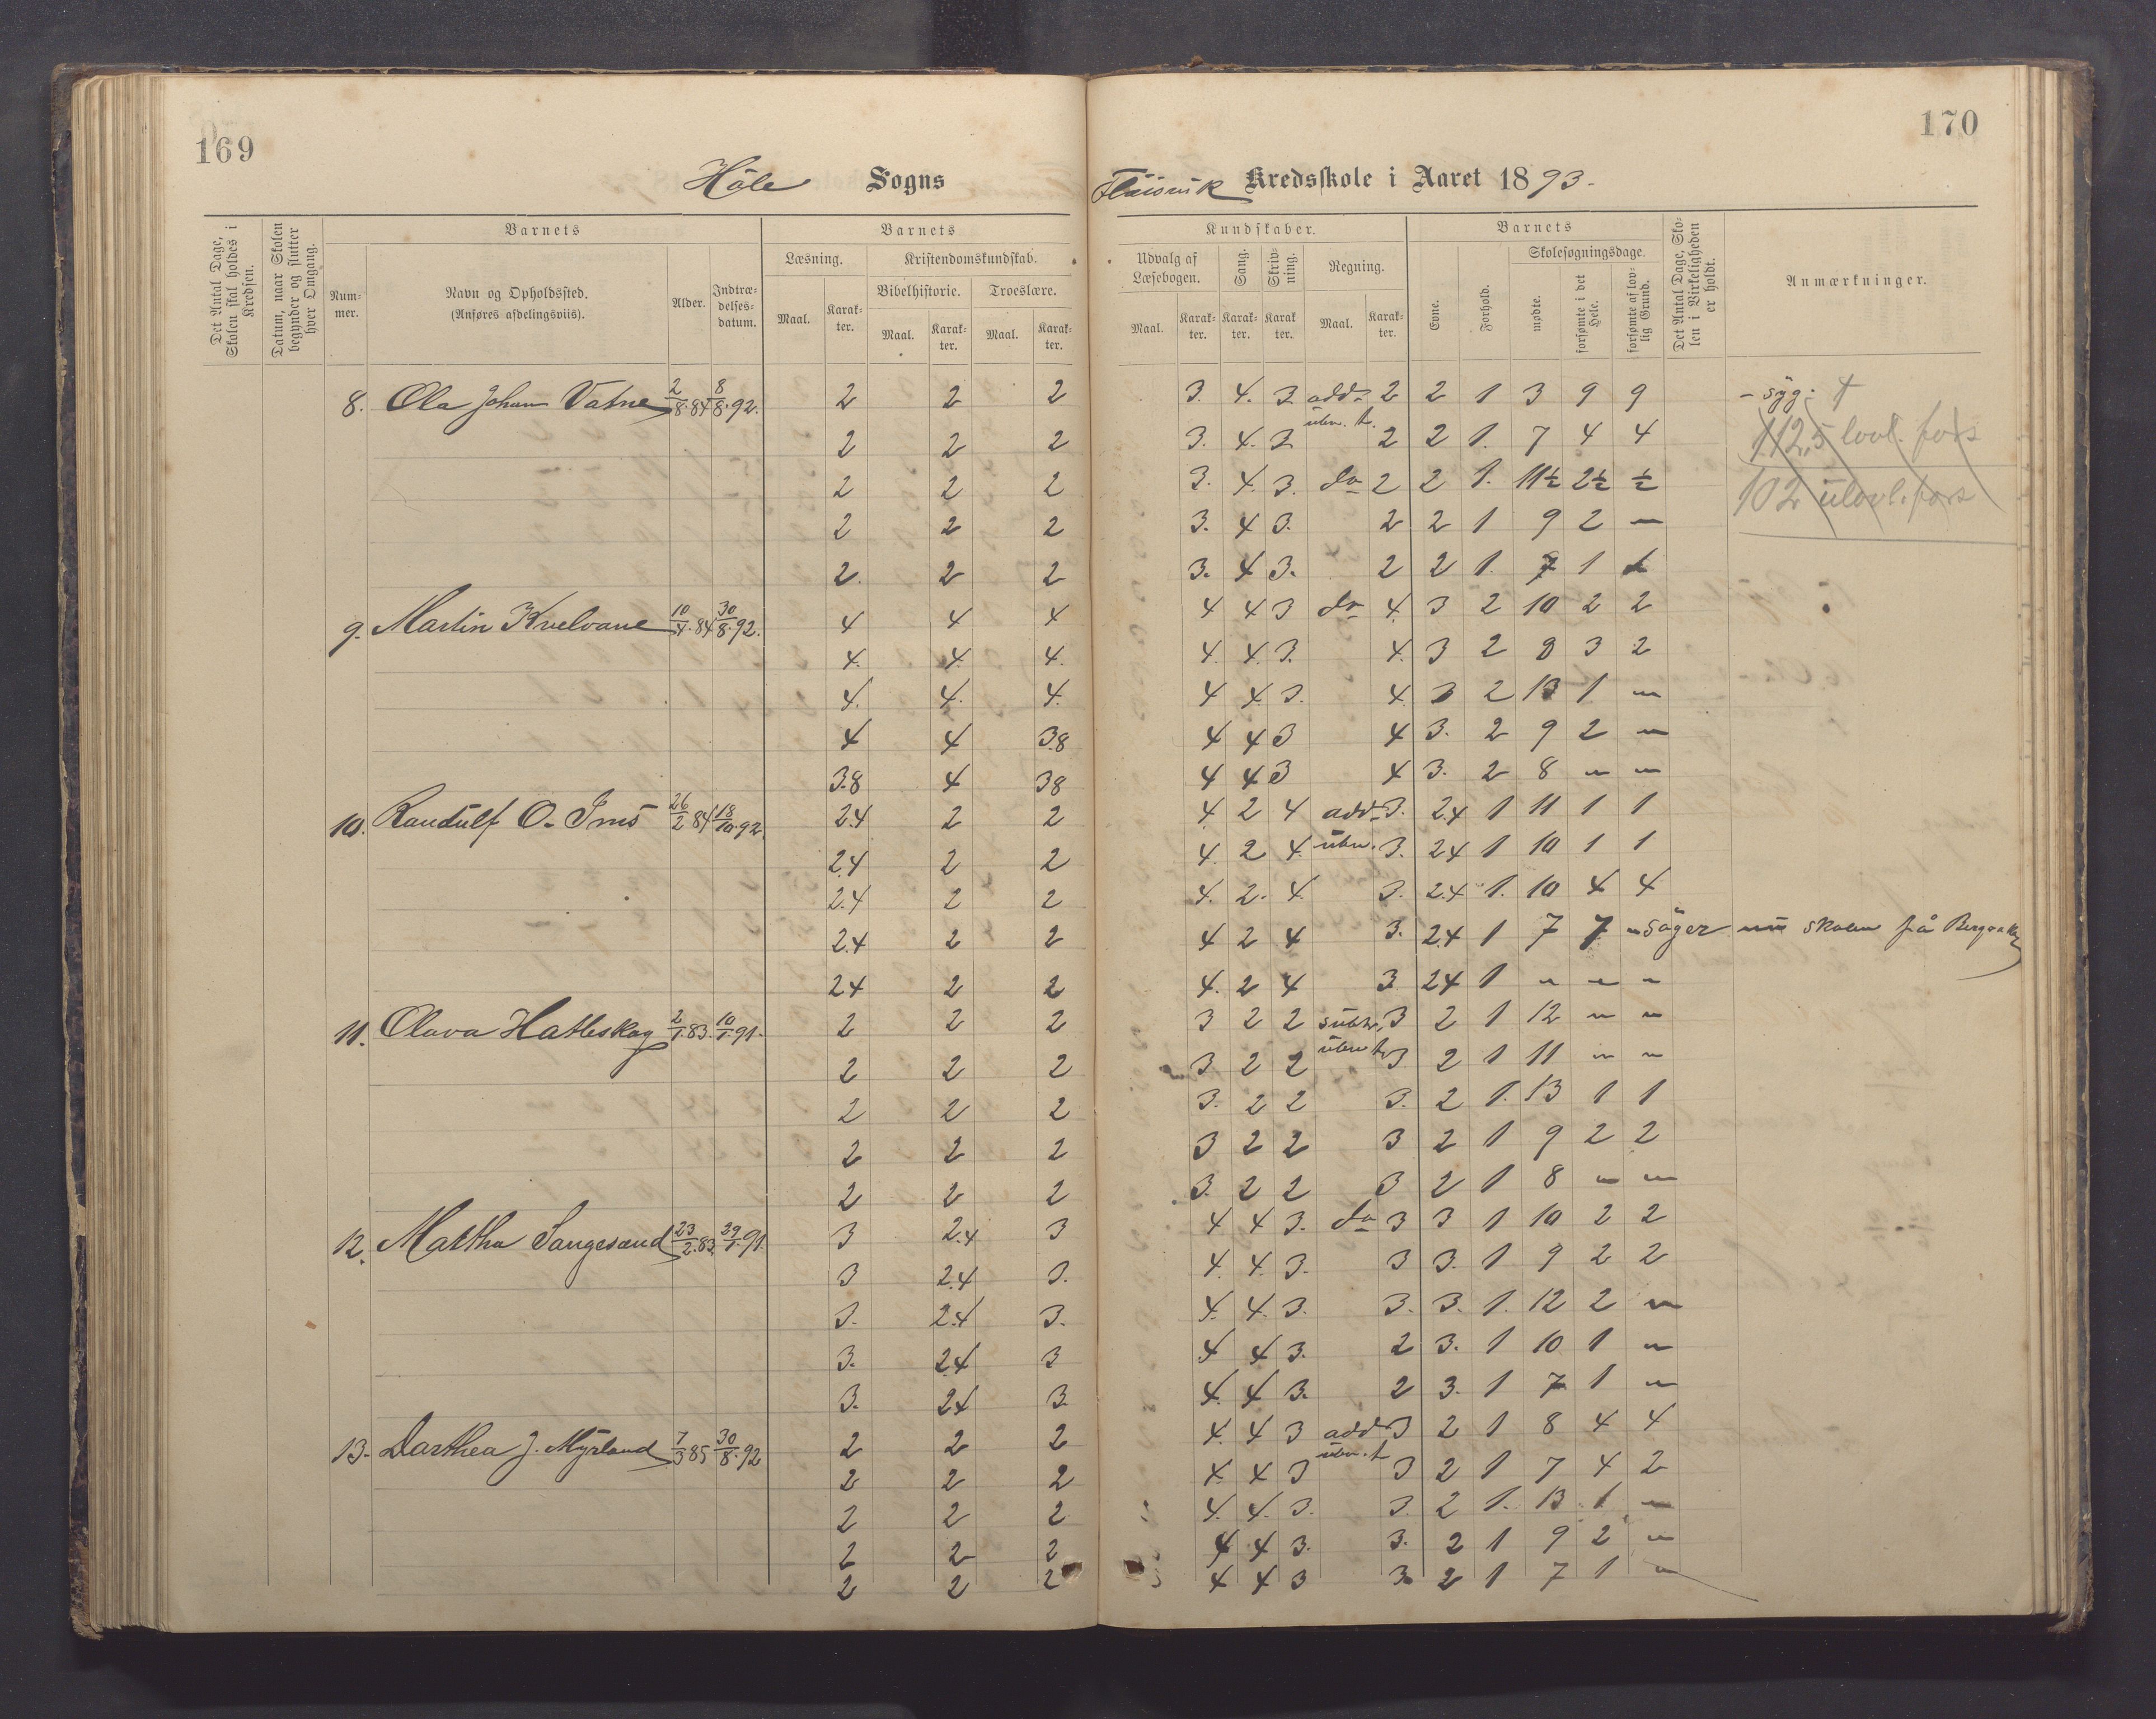 169
170
Høle Sogns
Kredsskole i Aaret 1893.
Det Antal Dage, Skolen skal holdes i Kredsen.
Datum, naar Skolen begynder og slutter hver Omgang.
Barnets
Num-
mer.
Navn og Opholdssted.
(Anføres afdelingsviis).
Alder.
Indtræ-
delses-
datum.
Barnets
Læsning.
Maal.
Karak-
ter.
Kristendomskundskab.
Bibelhistorie.
Troeslære.
Maal.
Karak-
ter.
Maal.
Karak-
ter.
Kundskaber.
Udvalg af
Læsebogen.
Maal.
Karak-
ter.
Sang.
Karak-
ter.
Skriv-
ning.
Karak
ter.
Regning.
Maal.
Karak-
ter.
Barnets
Evne.
Forhold.
Skolesøgningsdage.
mødte.
forsømte i det Hele.
forsømte af lov-
lig Grund.
Det Antal Dage, Sko-
len i Virkeligheden
er holdt.
Anmærkninger.
8. Ola Johan Vatne 2/8.84 8/8.92. 2 2 2 3. 4. 3. add- 2 2 1 3 9 9 - syg.
2 2 2 3. 4. 3 ubn. t. 2 2 1. 7 4 4 112,5 lovl. fors
2 2 2 3. 4. 3. do 2 2 1. 11½ 2½ ½ 102 ulovl. fors
2 2 2 3. 4 3. 2 2 1 9 2 -
2. 2 2 3. 4 3. 2 2 1. 7 1 1
9. Martin Kvelvane 10/4.84 30/8.92. 4 4 4 4 4 3 do 4. 3 2 10 2 2
4. 4. 4. 4. 4. 3. 4. 3 2 8 3 2
4. 4. 4. 4 4. 3. 4. 3 2 13 1. -
4 4 3.8 4 4 3 4 3. 2 9 2 -
3.8 4 38 4 4 3 4 3. 2 8 - -
10. Randulf O. Ims 26/2 84 18/10.92. 2.4 2 2 4 2 4 add- 3. 2.4 1 11 1 1
2.4 2 2 4. 2 4. ubn. 3. 24 1 10 1 1
2.4 2 2 4. 2. 4. 3. 2.4 1. 10 4 4
2.4 2 2 4 2 4 3. 2.4 1 7 7 - søger nu skolen på
24 2 2 4. 2 4 3 24 1 - - -
11. Olava Hatleskog 2/1.83. 10/1.91. 2 2 2 3 2 2 subtr. 3 2 1 12 - -
2 2 2 3 2 2 ubn t. 3 2 1 11 - -
2 2 2 3. 2 2 3. 2 1. 13 1 1
2 2 2 3 2 2 3 2 1 9 2 2
2 2 2 3. 2 2 3 2 1 8 - -
12. Martha Sangesand 23/2.83. 29/1.91. 3 2.4 3 4 4 3. do 3 3 1 10 2 2
3 2.4 3. 4. 4. 3. 3 3. 1 9 2 2
3. 2.4 3. 4. 4. 3. 3. 3. 1. 12 2 -
3. 24 3 4 4 3. 2 3. 1 10 1 -
3. 24 3. 4. 4 3. 2 3. 1 7 1 -
13. Darthea J. Myrland 7/3 85 30/8.92 2 2 2 4. 4 3 add 3 2 1 8 4 4
2 2 2 4. 4 3 ubn. t 3 2 1 7 4 2
2 2 2 4. 4. 3. 3. 2 1. 13 1 -
2 2 2 4 4 3. 3. 2 1 9 2 -
2 2 2 4 4 3 3. 2 1 7 1 -